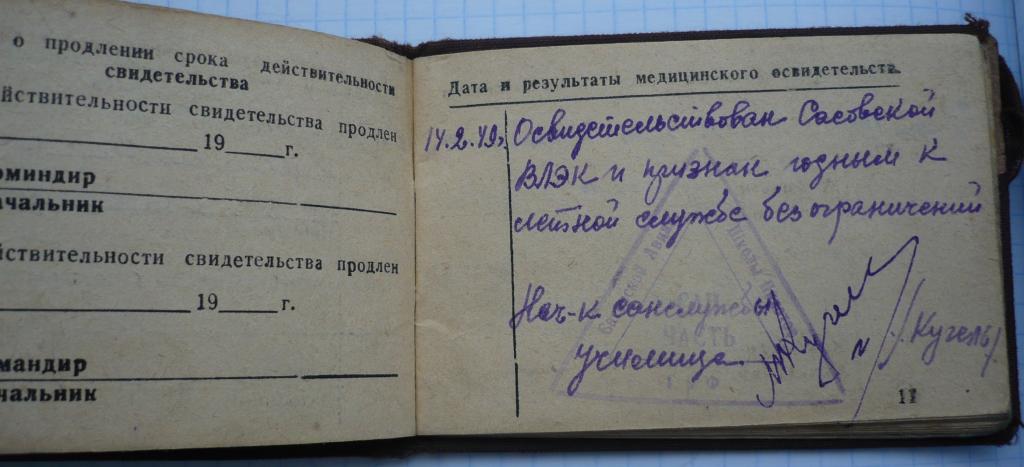 о продлении срока действительности
свидетельства
йствительности свидетельства продлен
19 г.
оминдир
ачальник
йствительности свидетельства продлен
19 г.
мандир
чальник
Дата и результаты медицинского освидетельств.
14.2.49г Освидетельствован Сасовской
ВЛЭК и признан годным к
летной службе без ограничений
Нач-к санслужбы
училища
/Кугель/
САН
ЧАСТЬ
Г В Ф
11